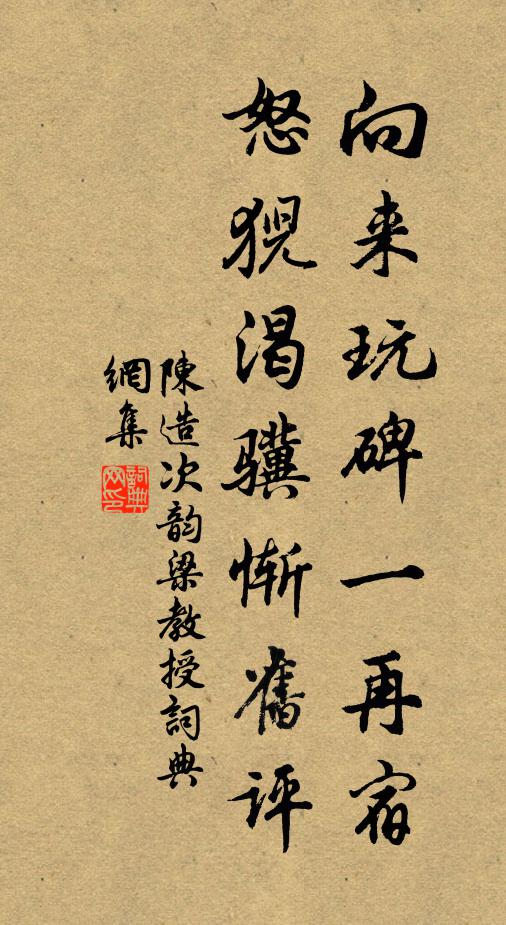 向来玩碑一再宿
怒猊渴骥惭舊评
陳造次韵梁教授詞典
網集
詞典
网印